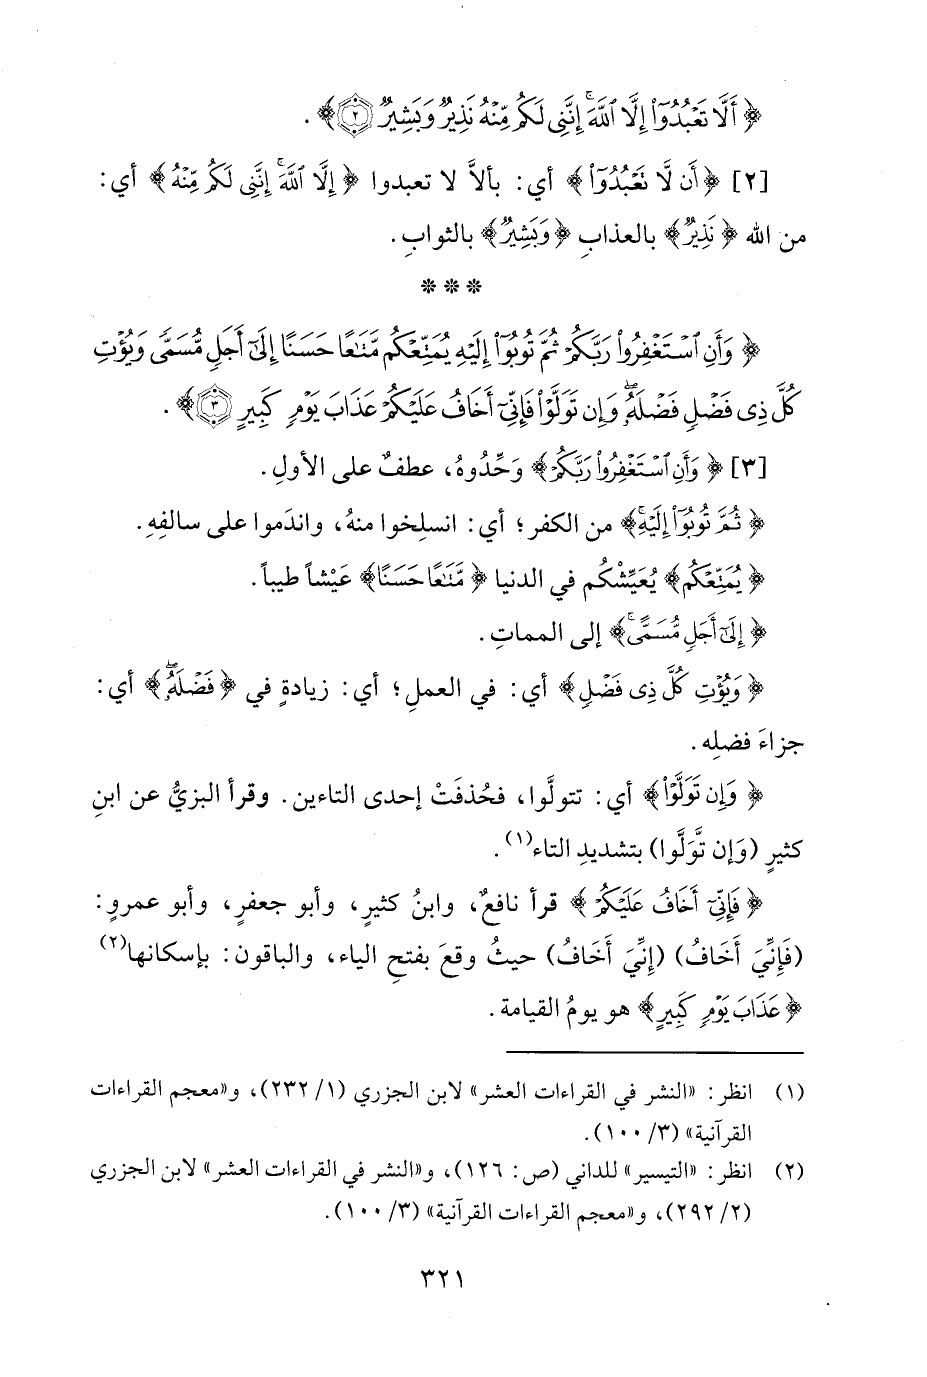 ﴿أَلَّا تَعْبُدُوٓا۟ إِلَّا ٱللَّهَ ۚ إِنَّنِى لَكُم مِّنْهُ نَذِيرٌ وَبَشِيرٌ ٢﴾.
[٢] ﴿أَن لَّا تَعْبُدُوٓا۟﴾ أي: بألاَّ لا تعبدوا ﴿إِلَّا ٱللَّهَ ۚ إِنَّنِى لَكُم مِّنْهُ﴾ أي:
من الله ﴿نَذِيرٌ﴾ بالعذابِ ﴿وَبَشِيرٌ﴾ بالثوابِ.
* * *
﴿وَأَنِ ٱسْتَغْفِرُوا۟ رَبَّكُمْ ثُمَّ تُوبُوٓا۟ إِلَيْهِ يُمَتِّعْكُم مَّتَـٰعًا حَسَنًا إِلَىٰٓ أَجَلٍ مُّسَمًّى وَيُؤْتِ
كُلَّ ذِى فَضْلٍ فَضْلَهُۥ ۖ وَإِن تَوَلَّوْا۟ فَإِنِّىٓ أَخَافُ عَلَيْكُمْ عَذَابَ يَوْمٍ كَبِيرٍ ٣﴾.
[٣] ﴿وَأَنِ ٱسْتَغْفِرُوا۟ رَبَّكُمْ﴾ وَحِّدُوهُ، عطفٌ على الأولِ.
﴿ثُمَّ تُوبُوٓا۟ إِلَيْهِ ۚ﴾ من الكفر؛ أي: انسلِخوا منهُ، واندَموا على سالفِهِ.
﴿يُمَتِّعْكُم﴾ يُعَيِّشْكُم في الدنيا ﴿مَّتَـٰعًا حَسَنًا﴾ عَيْشاً طيباً.
﴿إِلَىٰٓ أَجَلٍ مُّسَمًّى ۚ﴾ إلى المماتِ.
﴿وَيُؤْتِ كُلَّ ذِى فَضْلٍ﴾ أي: في العملِ؛ أي: زيادةٍ في ﴿فَضْلَهُۥ ۖ﴾ أي:
جزاءَ فضلِه.
﴿وَإِن تَوَلَّوْا۟﴾ أي: تتولَّوا، فحُذفَتْ إحدى التاءين. وقرأ البزيُّ عن ابنِ
كثيرٍ (وَإن تَّوَلَّوا) بتشديدِ التاء(١).
﴿فَإِنِّىٓ أَخَافُ عَلَيْكُمْ﴾ قرأ نافعٌ، وابنُ كثيرٍ، وأبو جعفرٍ، وأبو عمروٍ:
(فَإِنِّيَ أَخَافُ) (إِنِّيَ أَخَافُ) حيثُ وقعَ بفتحِ الياء، والباقون: بإسكانها(٢)
﴿عَذَابَ يَوْمٍ كَبِيرٍ﴾ هو يومُ القيامة.
(١) انظر: «النشر في القراءات العشر» لابن الجزري (١/ ٢٣٢)، و«معجم القراءات
القرآنية» (٣/ ١٠٠).
(٢) انظر: «التيسير» للداني (ص: ١٢٦)، و«النشر في القراءات العشر» لابن الجزري
(٢/ ٢٩٢)، و«معجم القراءات القرآنية» (٣/ ١٠٠).
٣٢١